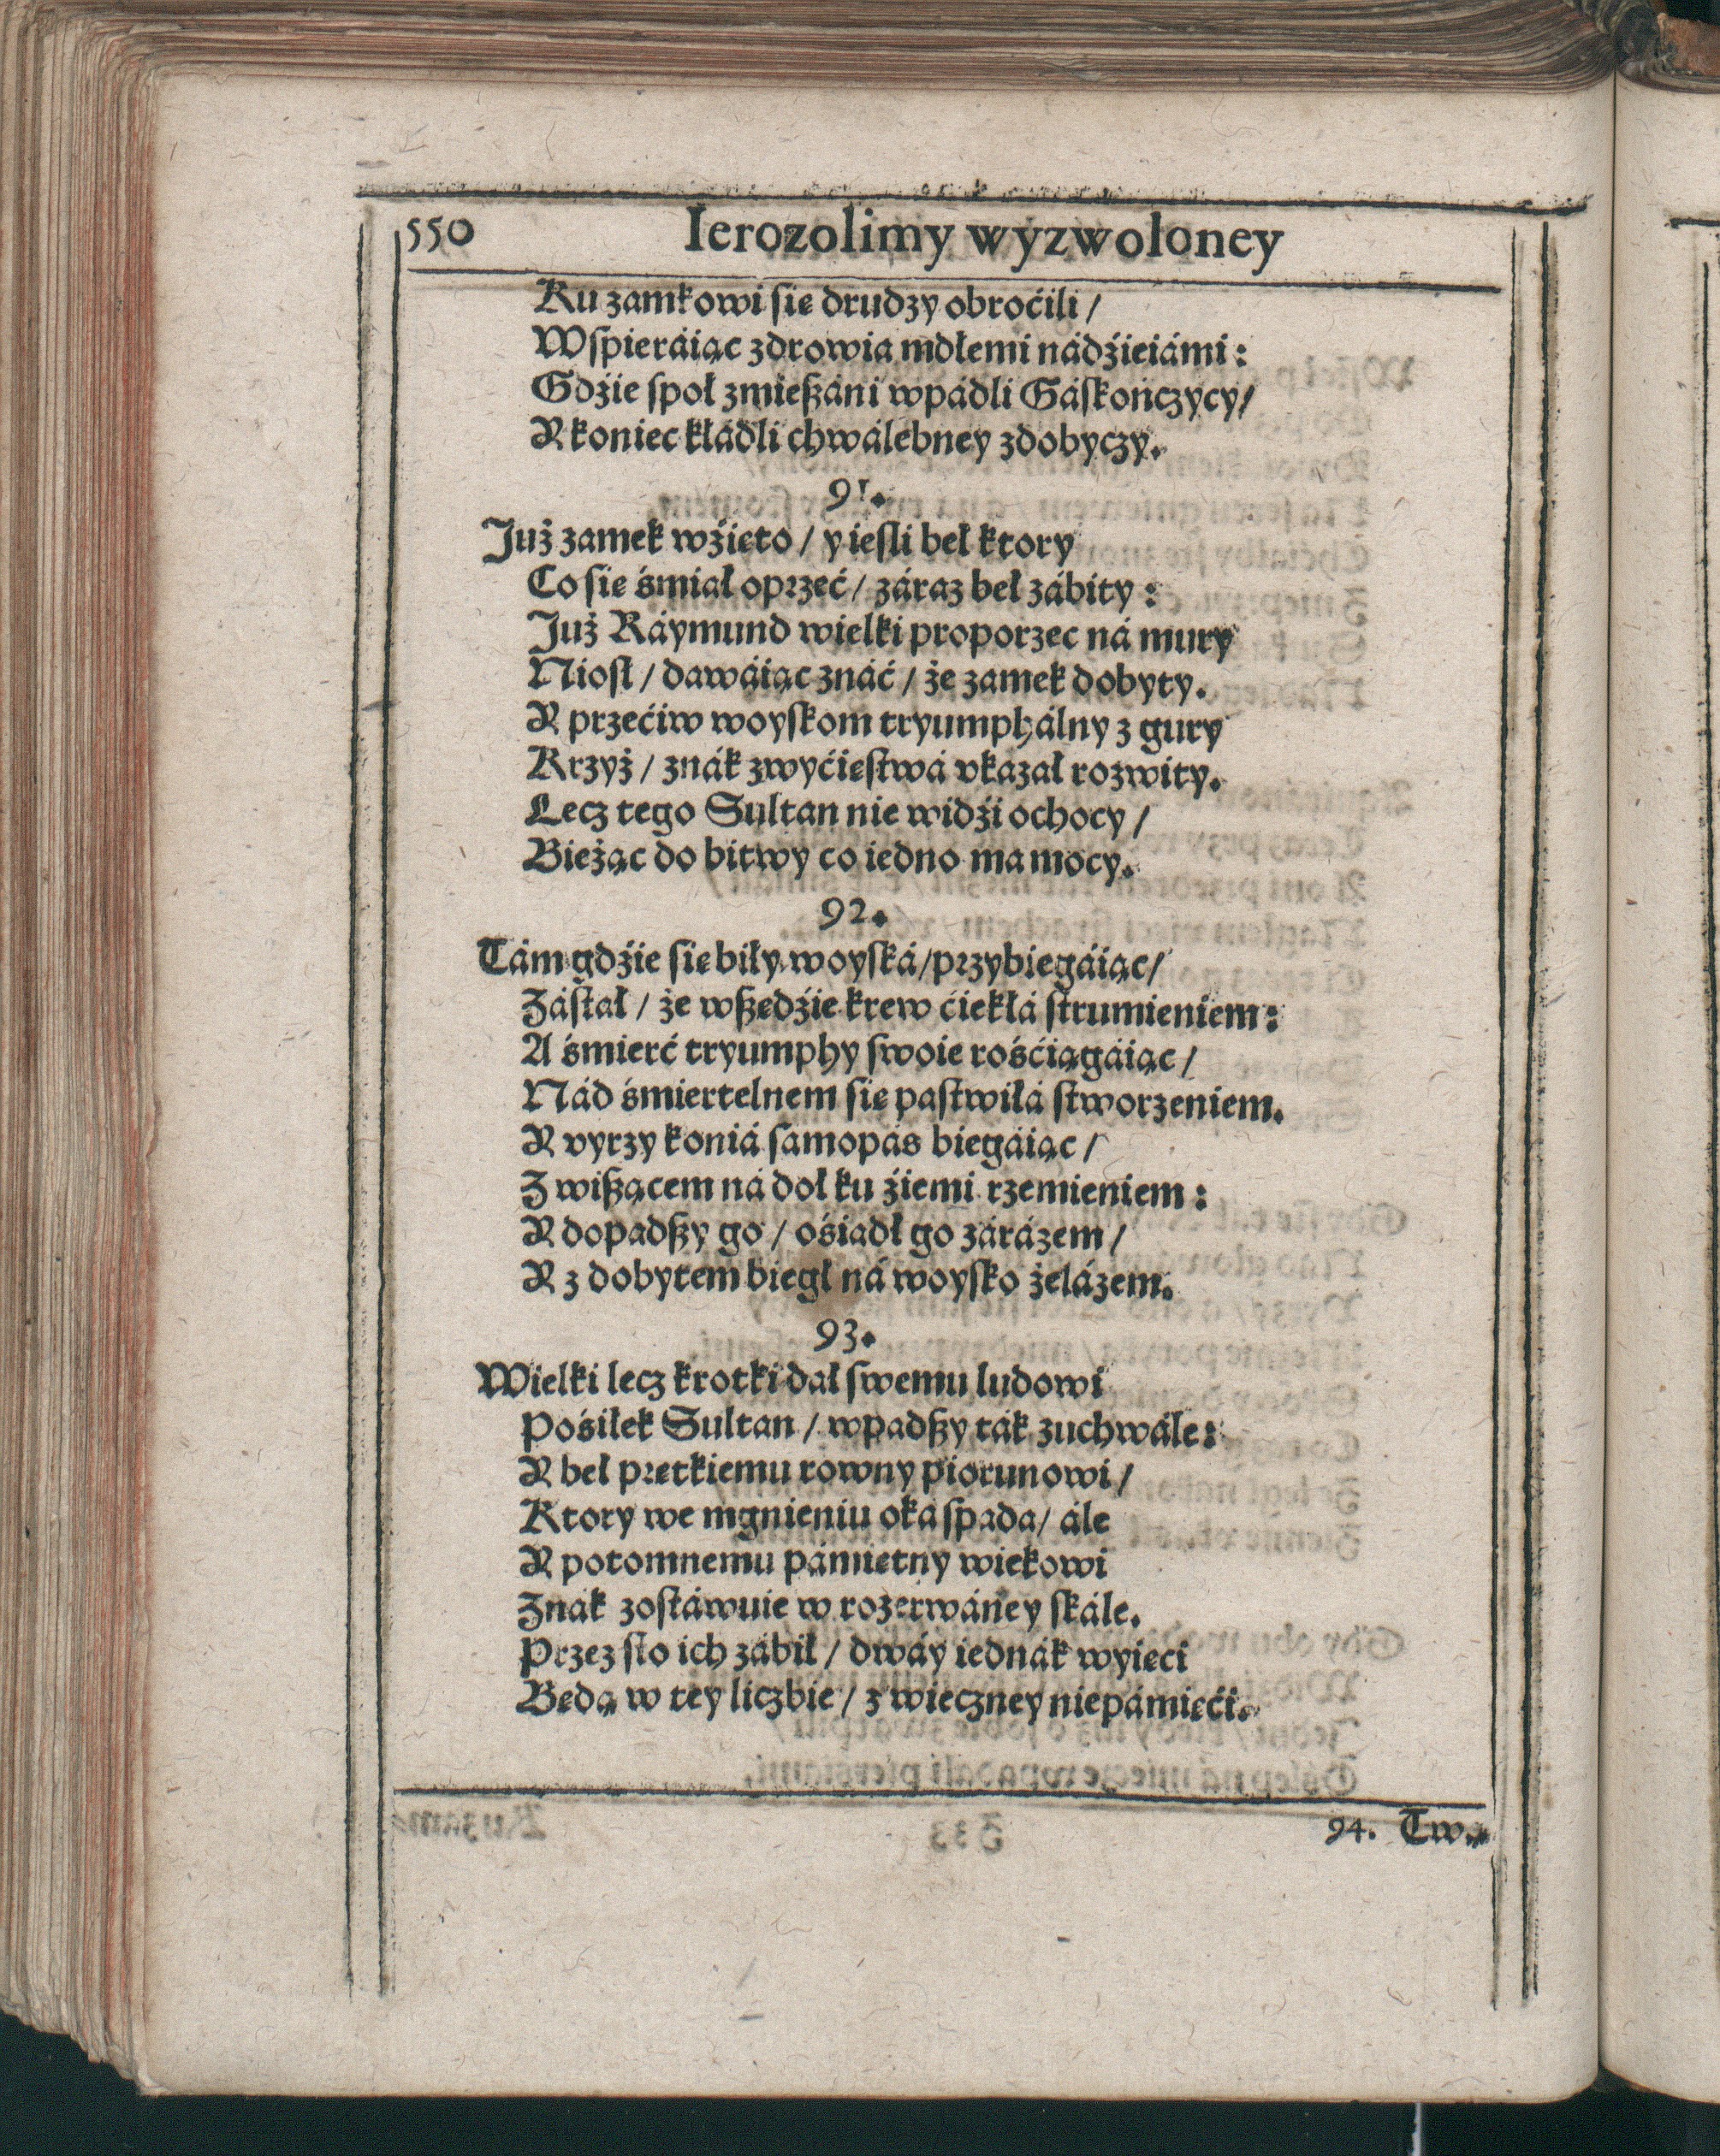 550 Ierozolimy wyzwoloney
Ku zamkowi ſie drudzy obroćili /
Wſpieráiąc zdrowia mdłemi nádźieiámi :
Gdźie ſpoł zmießáni wpádli Gáſkończycy /
Y koniec kłádli chwálebney zdobyczy.
91.
Już zamek wźięto / y ieſli beł ktory
Co ſie śmiał oprzeć / záraz beł zábity :
Już Ráymund wielki proporzec ná mury
Nioſł / dawáiąc znáć / że zamek dobyty.
Y przećiw woyſkom tryumphálny z gury
Krzyż / znák zwyćięſtwá vkazał rozwity.
Lecz tego Sultan nie widźi ochocy /
Bieżąc do bitwy co iedno ma mocy.
92.
Tám gdźie ſie biły woyſká / przybiegáiąc /
Záſtał / że wßędźie krew ćiekłá ſtrumieniem :
A śmierć tryumphy ſwoie rośćiągáiąc /
Nád śmiertelnem ſie paſtwiłá ſtworzeniem.
Y vyrzy koniá ſamopás biegáiąc /
Z wißącem ná doł ku źiemi rzemieniem :
Y dopadßy go / ośiadł go zárázem /
Y z dobytem biegł ná woyſko żelázem.
93.
Wielki lecz krotki dał ſwemu ludowi
Pośiłek Sultan / wpadßy ták zuchwále :
Y beł prętkiemu rowny piorunowi /
Ktory we mgnieniu oká ſpada / ále
Y potomnemu pámiętny wiekowi
Znák zoſtáwuie w rozerwáney ſkále.
Przez ſto ich zábił / dwáy iednák wyięci
Będą w tey liczbie / z wieczney niepámięći.
94. Tw.